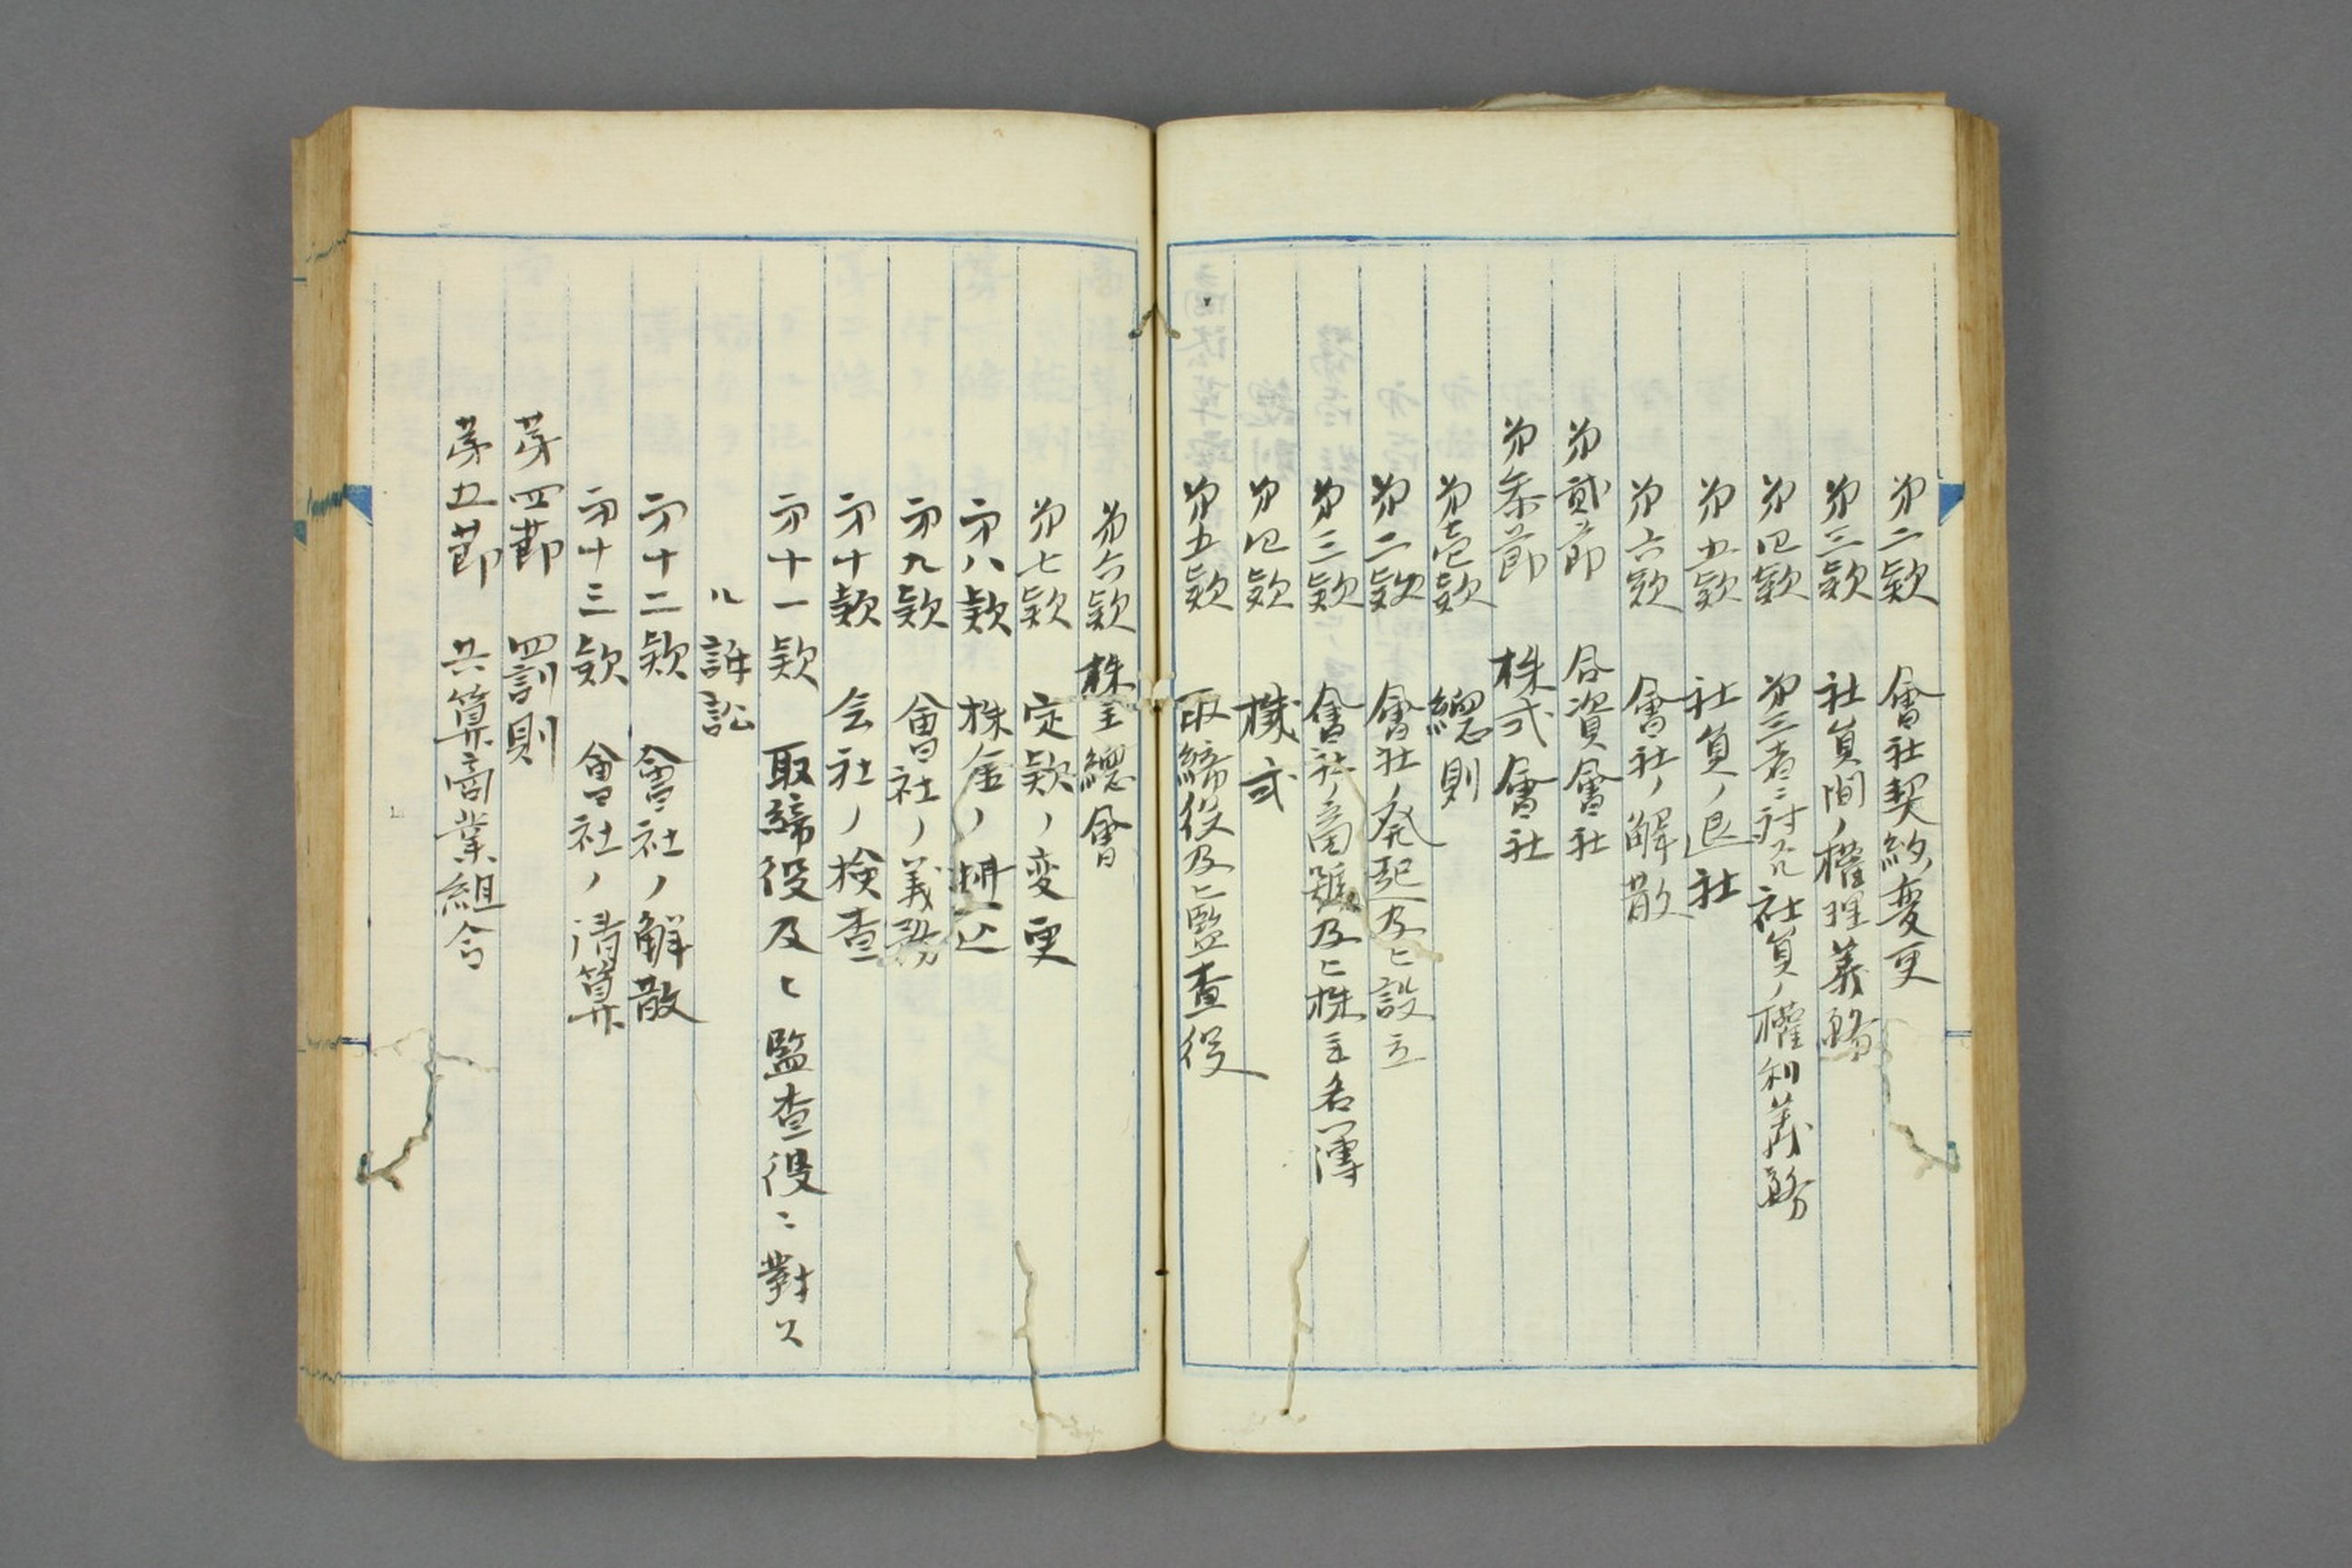 第二款　會社契約ノ変更
第三款　社員間ノ權理義務
第四款　第三者ニ対スル社員ノ權利義務
第五款　社員ノ退社
第六款　會社ノ解散
第貳節　合資會社
第叁節　株式會社
第壱款　總則
第二款　會社ノ発起及ヒ設立
第三款　會社ノ商號及ヒ株主名簿
第四款　株式
第五款　取締役及ヒ監査役
第六款　株主總會
第七款　定款ノ変更
第八款　株金ノ拂込
第九款　會社ノ義務
第十款　会社ノ検査
第十一款　取締役及ヒ監査役ニ對ス
ル訴訟
第十二款　會社ノ解散
第十三款　會社ノ清算
第四節　罰則
第五節　共算商業組合